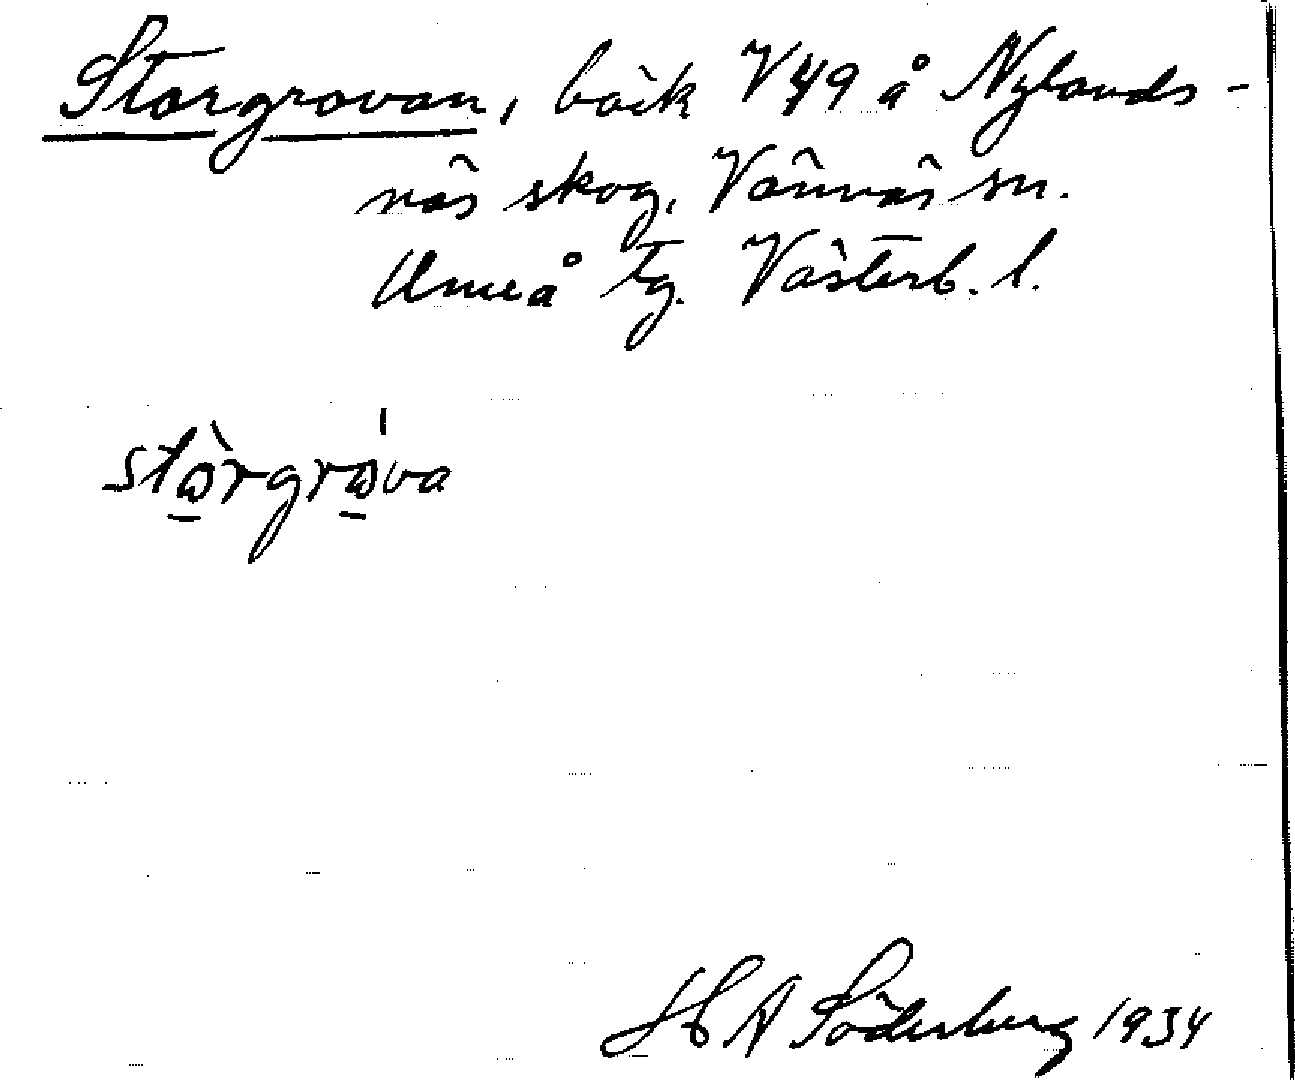 Storgrovan, bäck V 49 å Nylands-
näs skog, Vännäs sn.
Umeå tg. Västerb. l.
stὼ̲rgrώ̲va
H A Söderberg 1934